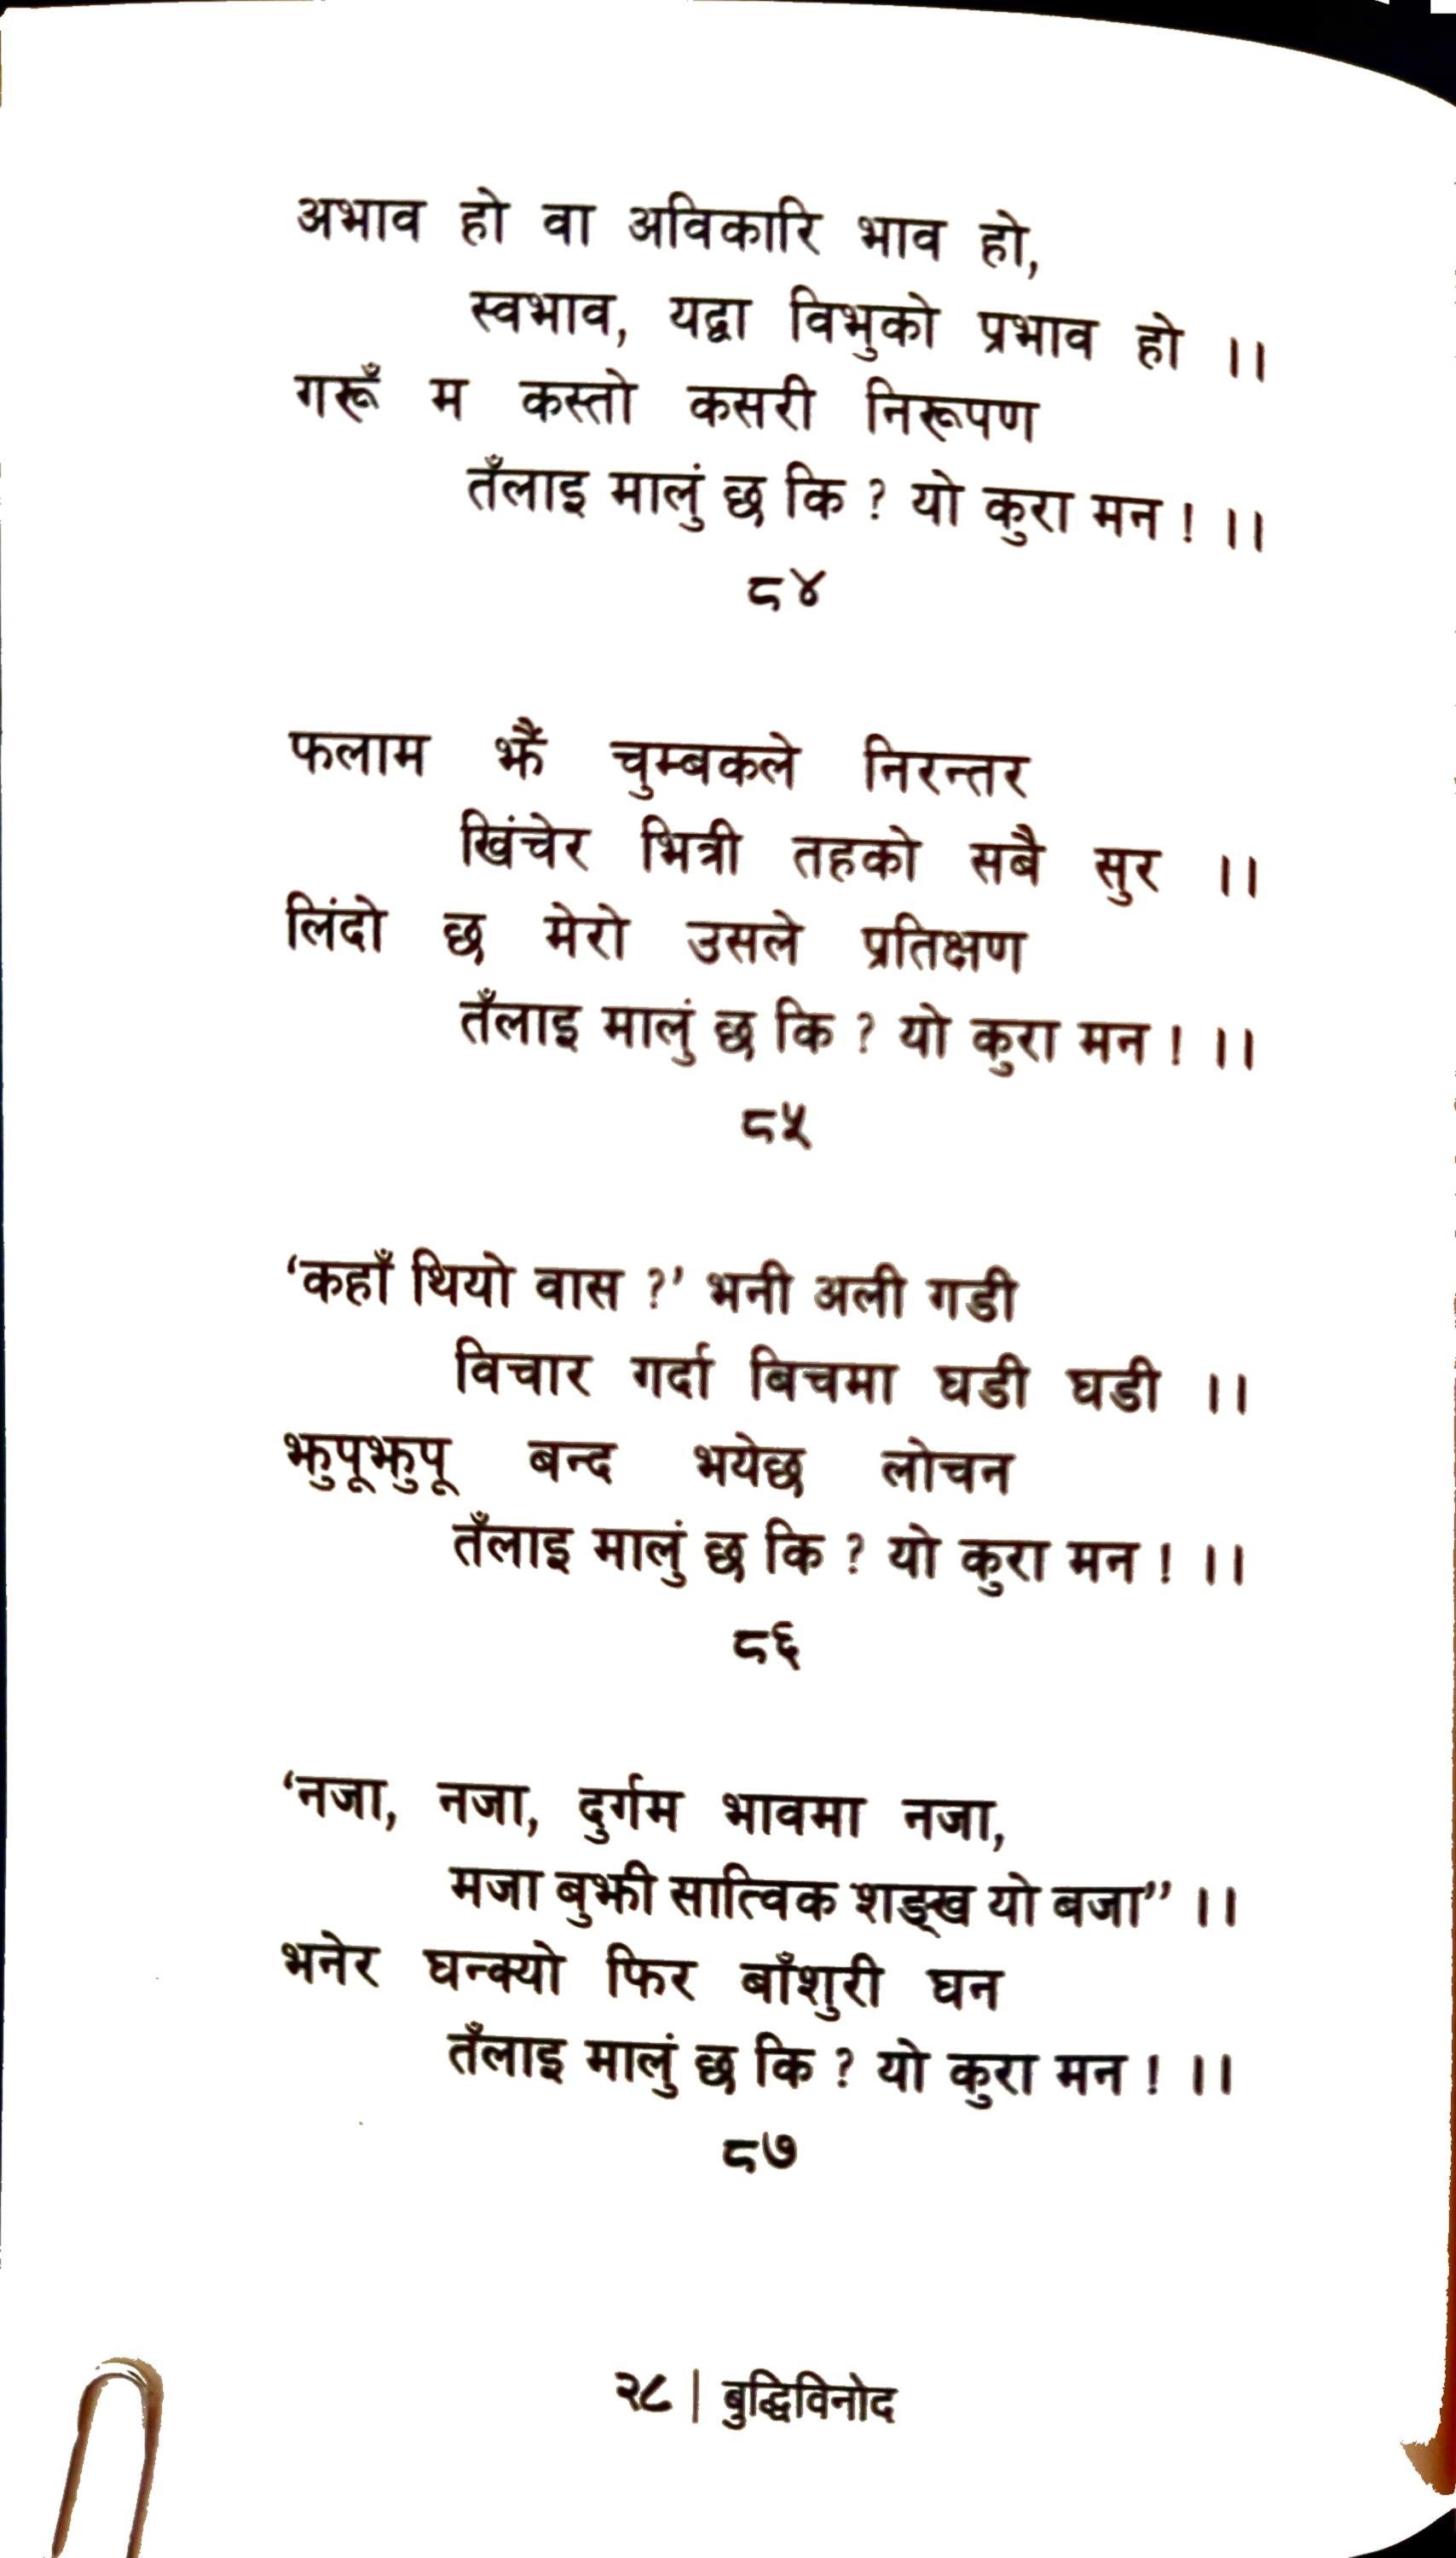 अभाव हो वा अविकारि भाव हो,
स्वभाव, यद्वा विभुको प्रभाव हो ।।
गरूँ म कस्तो कसरी निरूपण
तँलाइ मालुं छ कि ? यो कुरा मन ! ।।
८४
फलाम झैं चुम्बकले निरन्तर
खिंचेर भित्री तहको सबै सुर ।।
लिंदो छ मेरो उसले प्रतिक्षण
तँलाइ मालुं छ कि ? यो कुरा मन ! ।।
८५
‘कहाँ थियो वास ?’ भनी अली गडी
विचार गर्दा बिचमा घडी घडी ।।
झुपूझुपू बन्द भयेछ लोचन
तँलाइ मालुं छ कि ? यो कुरा मन ! ।।
८६
‘नजा, नजा, दुर्गम भावमा नजा,
मजा बुझी सात्विक शङ्ख यो बजा” ।।
भनेर घन्क्यो फिर बाँशुरी घन
तँलाइ मालुं छ कि ? यो कुरा मन ! ।।
८७
२८ | बुद्धिविनोद